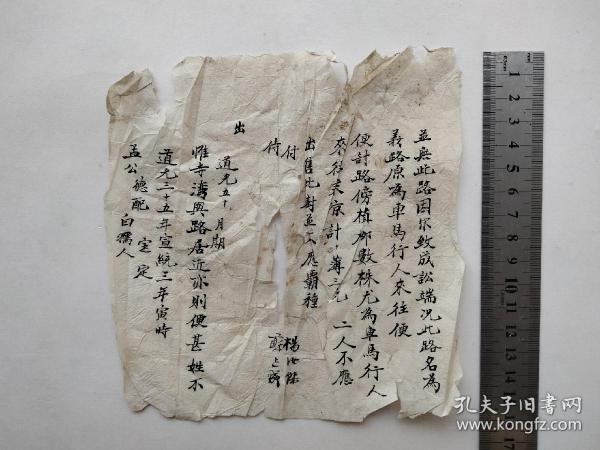 並無此路因你致成訟端況此路名為
義路原為車馬行人來往便
便計路傍植柳數株尤為車馬行人
來往
二人不應
出售
並不應霸種
付
付
楊
出
道光五十 月期
惟寺溝與路居近亦則便甚姓不
道光三十五年宣統三年寅時
定定
孟公德配白孺人
1
2
3
4
5
6
7
8
9
10
11
12
13
14
15
16
17
孔夫子旧书网
www.kongfz.com